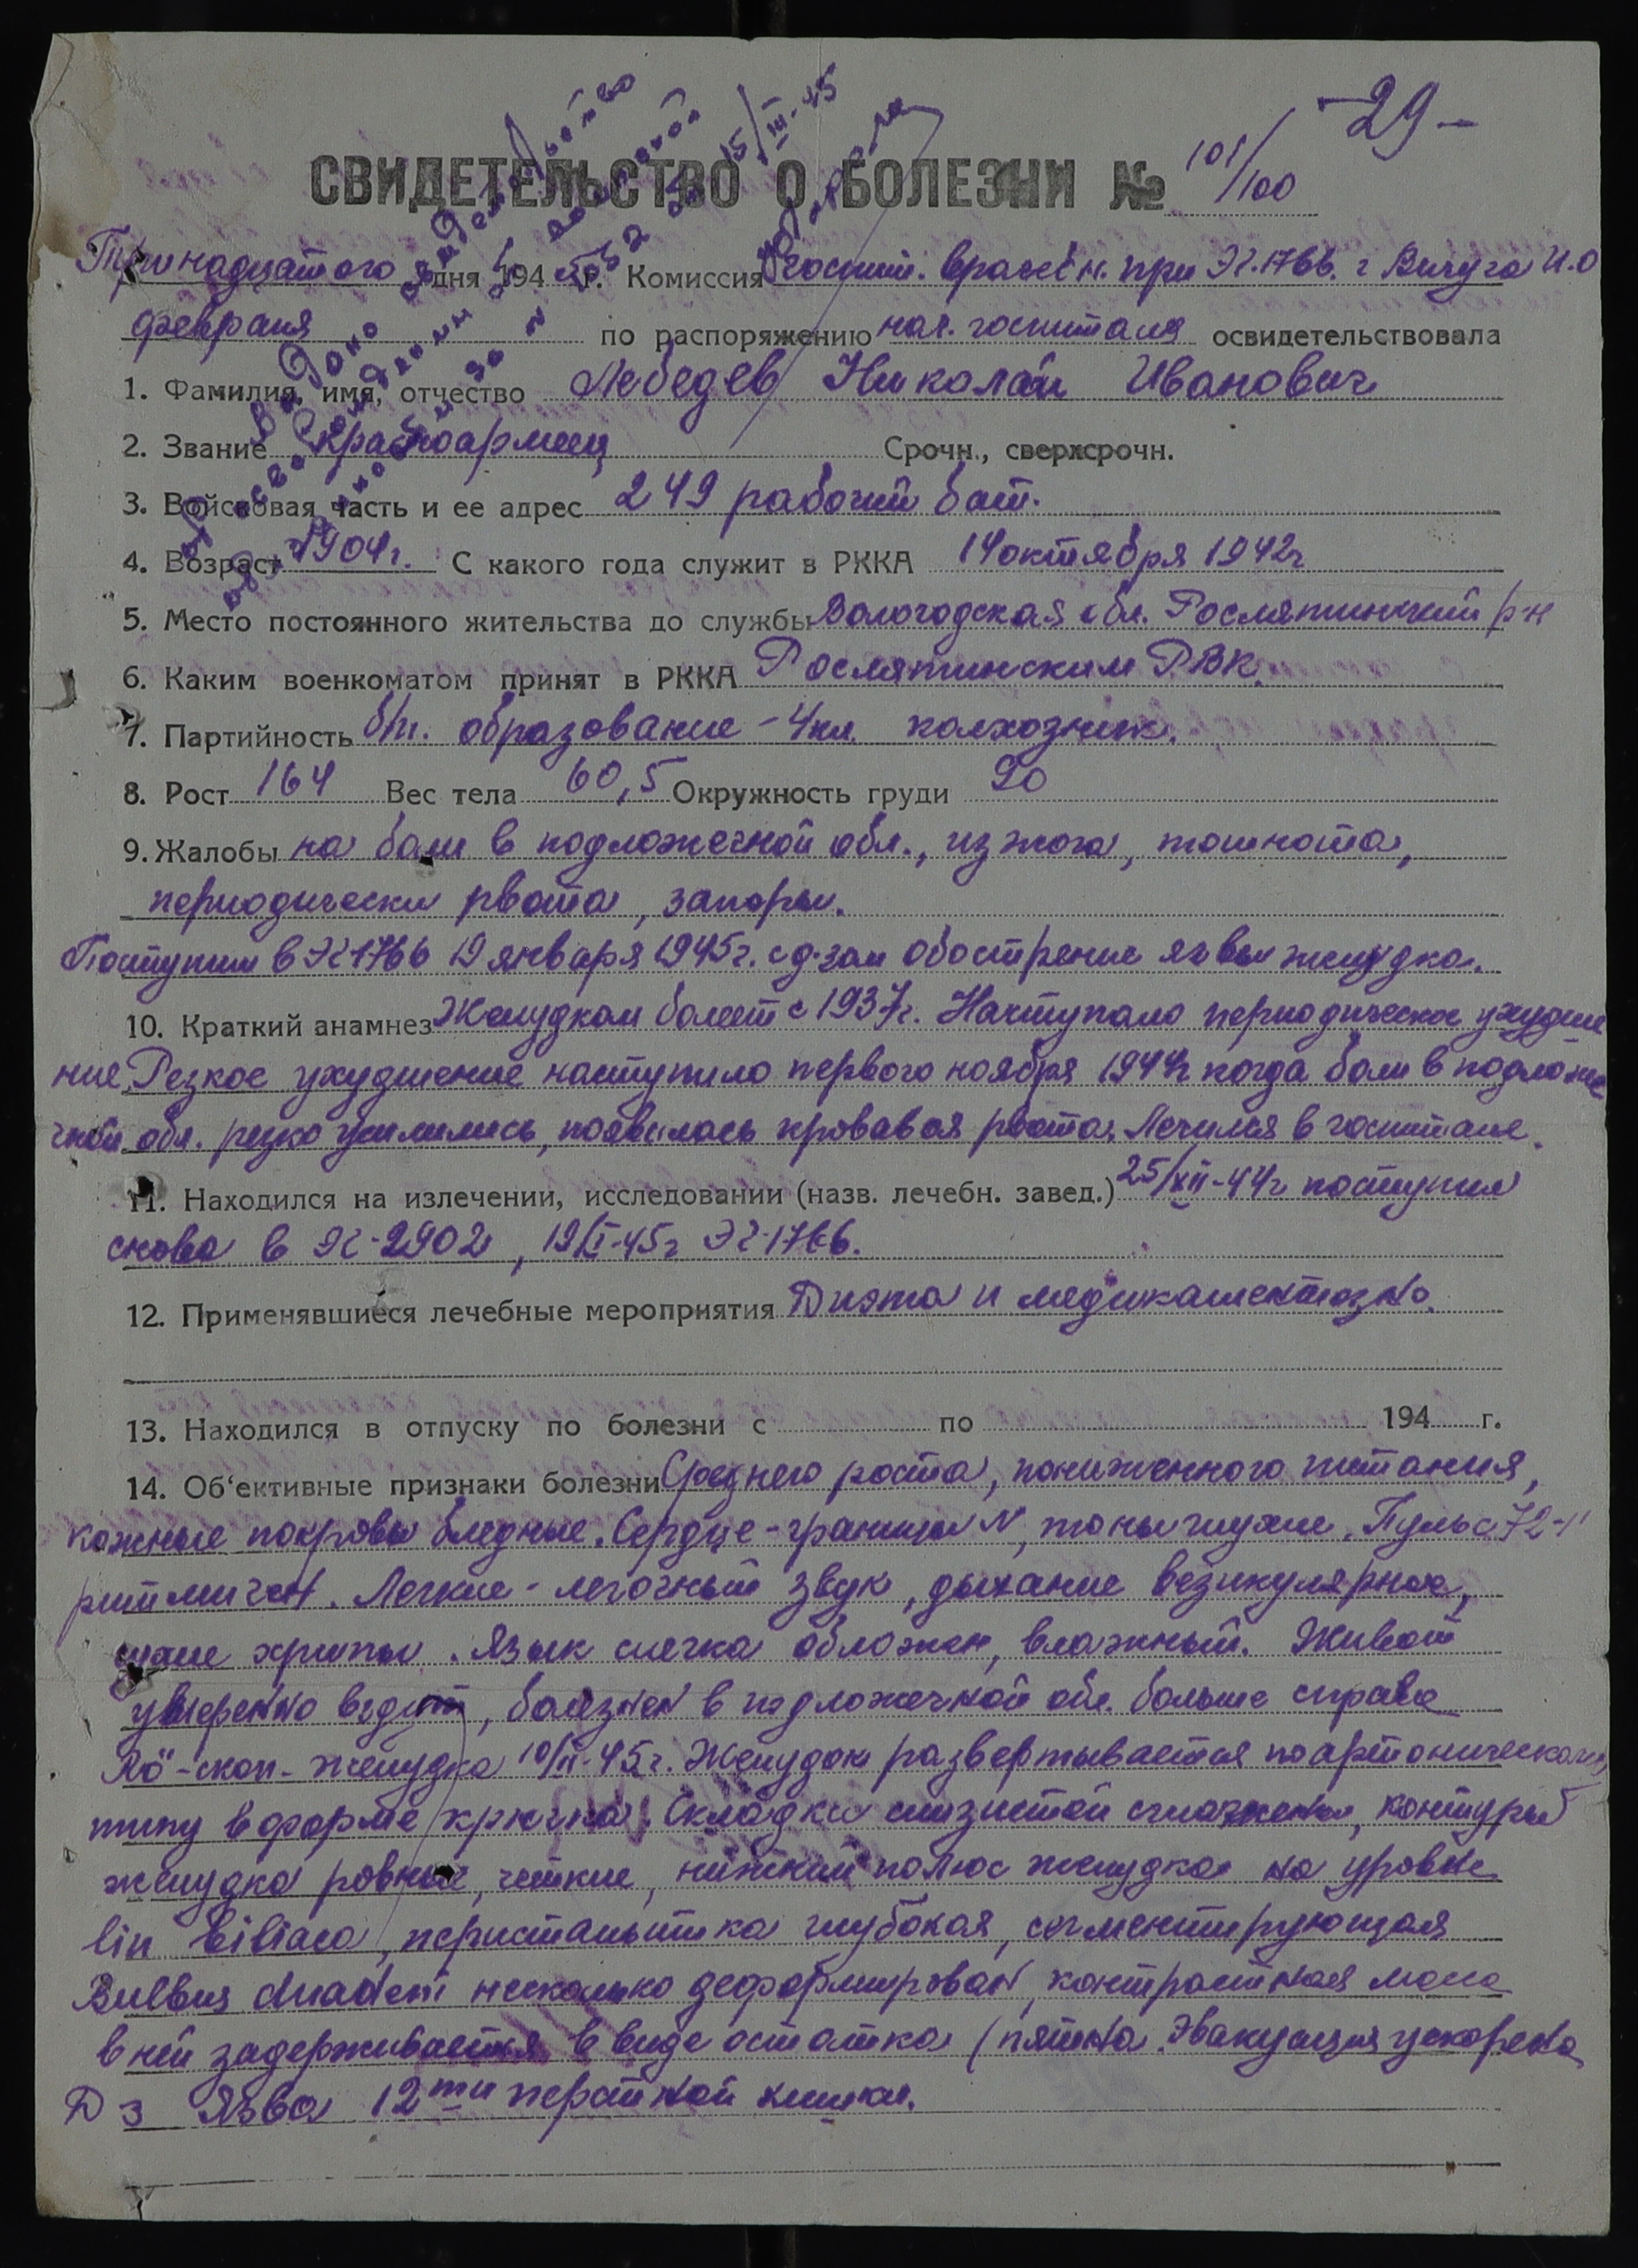 -29-
СВИДЕТЕЛЬСТВО О БОЛЕЗНИ № 101/100
Тринадцатого дня 1945 г. Комиссия госпит. врачебн. при ЭГ.1766. г Вичуга И.О
февраля по распоряжению нач. госпиталя освидетельствовала
1. Фамилия, имя, отчество Лебедев Николай Иванович
2. Звание красноармеец Срочн., сверхсрочн.
3. Войсковая часть и ее адрес 249 рабочий бат.
4. Возраст 1904г. С какого года служит в РККА 14 октября 1942г
5. Место постоянного жительства до службы Вологодская обл. Рослятинский р-н
6. Каким военкоматом принят в РККА Рослятинским РВК.
7. Партийность б/п. образование - 4 кл. колхозник.
8. Рост 164 Вес тела 60,5 Окружность груди 90
9. Жалобы на боли в подложечной обл., изжога, тошнота,
периодически рвота, запоры.
Поступил в ЭГ1766 19 января 1945г. с д-зом обострение язвы желудка.
10. Краткий анамнез Желудком болеет с 1937г. Наступало периодическое ухудше
ние. Резкое ухудшение наступило первого ноября 1944г когда боли в подложе
чной обл. резко усилились, появилась кровавая рвота. Лечился в госпитале.
11. Находился на излечении, исследовании (назв. лечебн. завед.) 25/XII-44г поступил
снова в ЭГ-2902, 19/I-45г ЭГ-1766.
12. Применявшиеся лечебные мероприятия Диэта и медикаментозно.
13. Находился в отпуску по болезни с по 194 г.
14. Об‘ективные признаки болезни Среднего роста, пониженного питания,
кожные покровы бледные. Сердце - границы N, тоны глухие. Пульс 72-1'
ритмичен. Легкие - легочный звук, дыхание везикулярное,
сухие хрипы. Язык слегка обложен, влажный. Живот
умеренно вздут, болезнен в подложечной обл. больше справа
Rö"-скоп- желудка 10/II-45г. Желудок развертывается по артоническому
типу в форме крючка. Складки слизистой сглажены, контуры
желудка ровные, четкие, нижний полюс желудка на уровне
lin biliaca, перистальтика глубокая, сегментирующая
Bulbus duadeni несколько деформирован, контрастная масса
в ней задерживается в виде остатка (пятна. Эвакуация ускорена
Дз Язва 12ти перстной кишки.